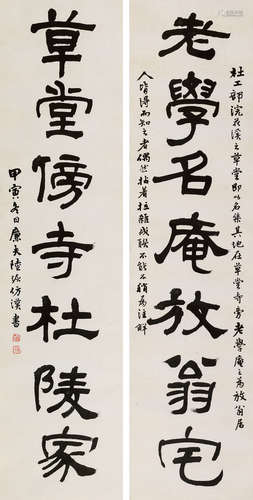 杜工部浣花溪之草堂即以名集其地在草堂寺旁老學庵之為放翁居
老學名庵放翁宅
人皆得而知之者偶然拈着拉雜成聯不能不稍為注解
草堂傍寺杜陵家
甲寅冬日廉夫陸恢仿漢書